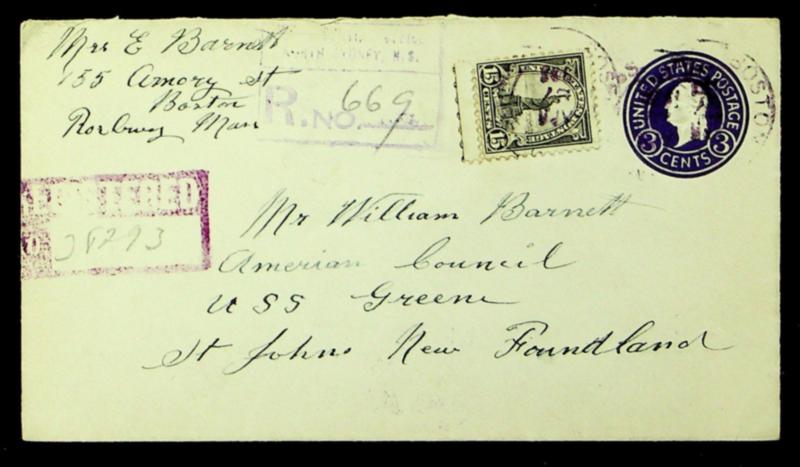 Mrs E Barnett
155 Amory St
Boston
Roxbury Mass
OFFICE
NORTH SYDNEY, N.S.
R. NO. 669
15 15
CENTS
BOSTON
UNITED STATES POSTAGE
3 3
CENTS
REGISTERED
NO 38293
Mr William Barnett
Amerian Council
USS Greene
St Johns New Foundland